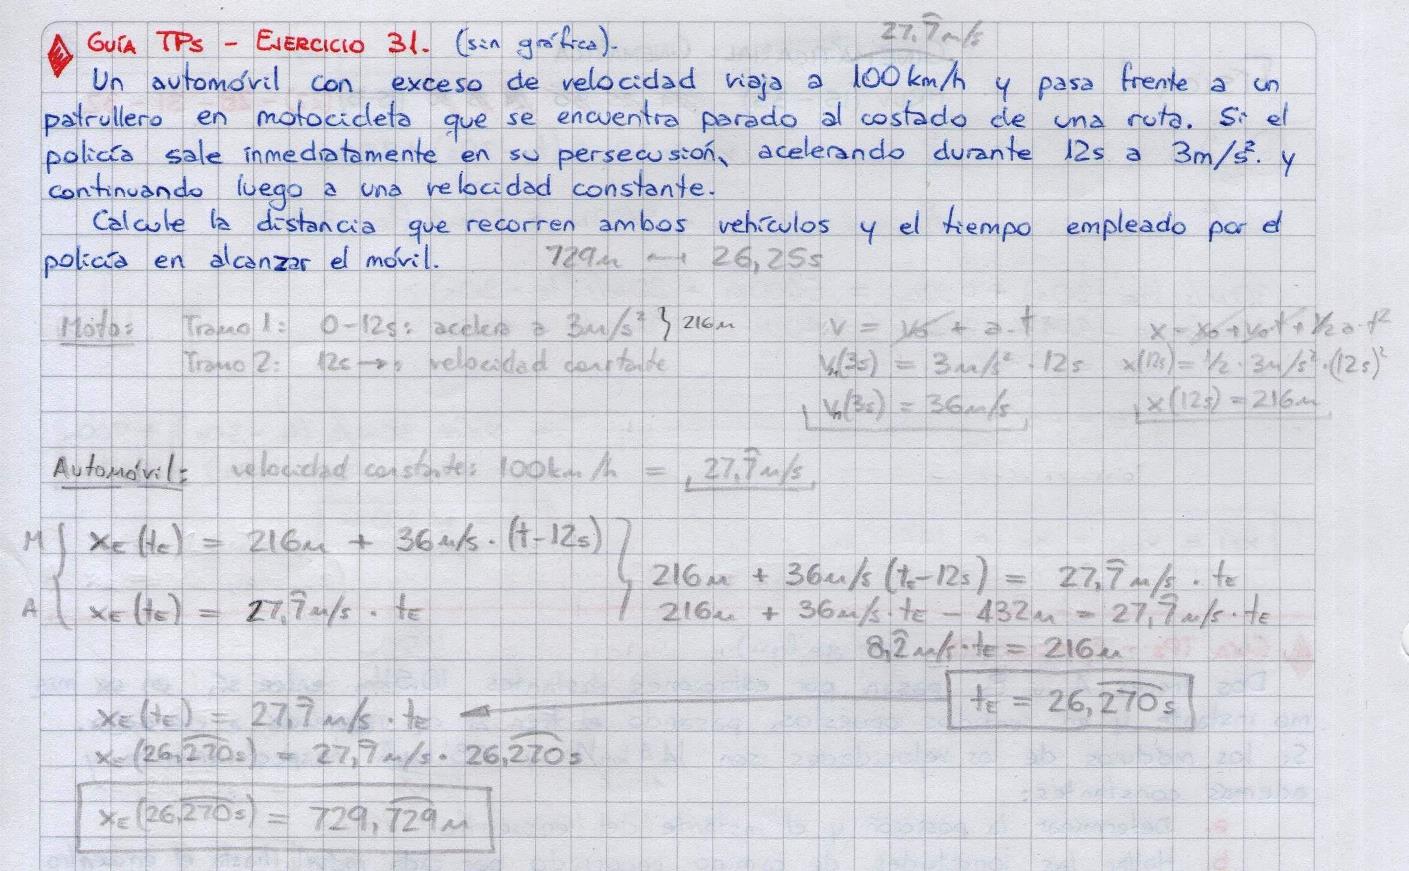 GUÍA TPs - EJERCICIO 31. (sin gráfica).
27,7̑ m/s
Un automóvil con exceso de velocidad viaja a 100 km/h y pasa frente a un
patrullero en motocicleta que se encuentra parado al costado de una ruta. Si el
policía sale inmediatamente en su persecusión, acelerando durante 12s a 3m/s². y
continuando luego a una velocidad constante.
Calcule la distancia que recorren ambos vehículos y el tiempo empleado por el
policía en alcanzar el móvil. 729m → 26,25s
Moto: Tramo 1: 0-12s: acelera a 3m/s² } 216m
Tramo 2: 12s →: velocidad constante
v = v₀ + a.t
vₘ(3s) = 3m/s² · 12s
vₘ(3s) = 36m/s
x = x₀ + v₀t + 1/2 a·t²
x(12s) = 1/2 · 3m/s² · (12s)²
x(12s) = 216m
Automóvil: velocidad constante: 100km/h = 27,7̑ m/s
M { xE (tE) = 216m + 36m/s · (t-12s)
A { xE (tE) = 27,7̑ m/s · tE
216m + 36m/s (tE-12s) = 27,7̑ m/s · tE
216m + 36m/s · tE - 432m = 27,7̑ m/s · tE
8,2̑ m/s · tE = 216m
tE = 26,2͡7͡0 s
xE (tE) = 27,7̑ m/s · tE
xE (26,2͡7͡0 s) = 27,7̑ m/s · 26,2͡7͡0 s
xE (26,2͡7͡0 s) = 729,7͡2͡9 m